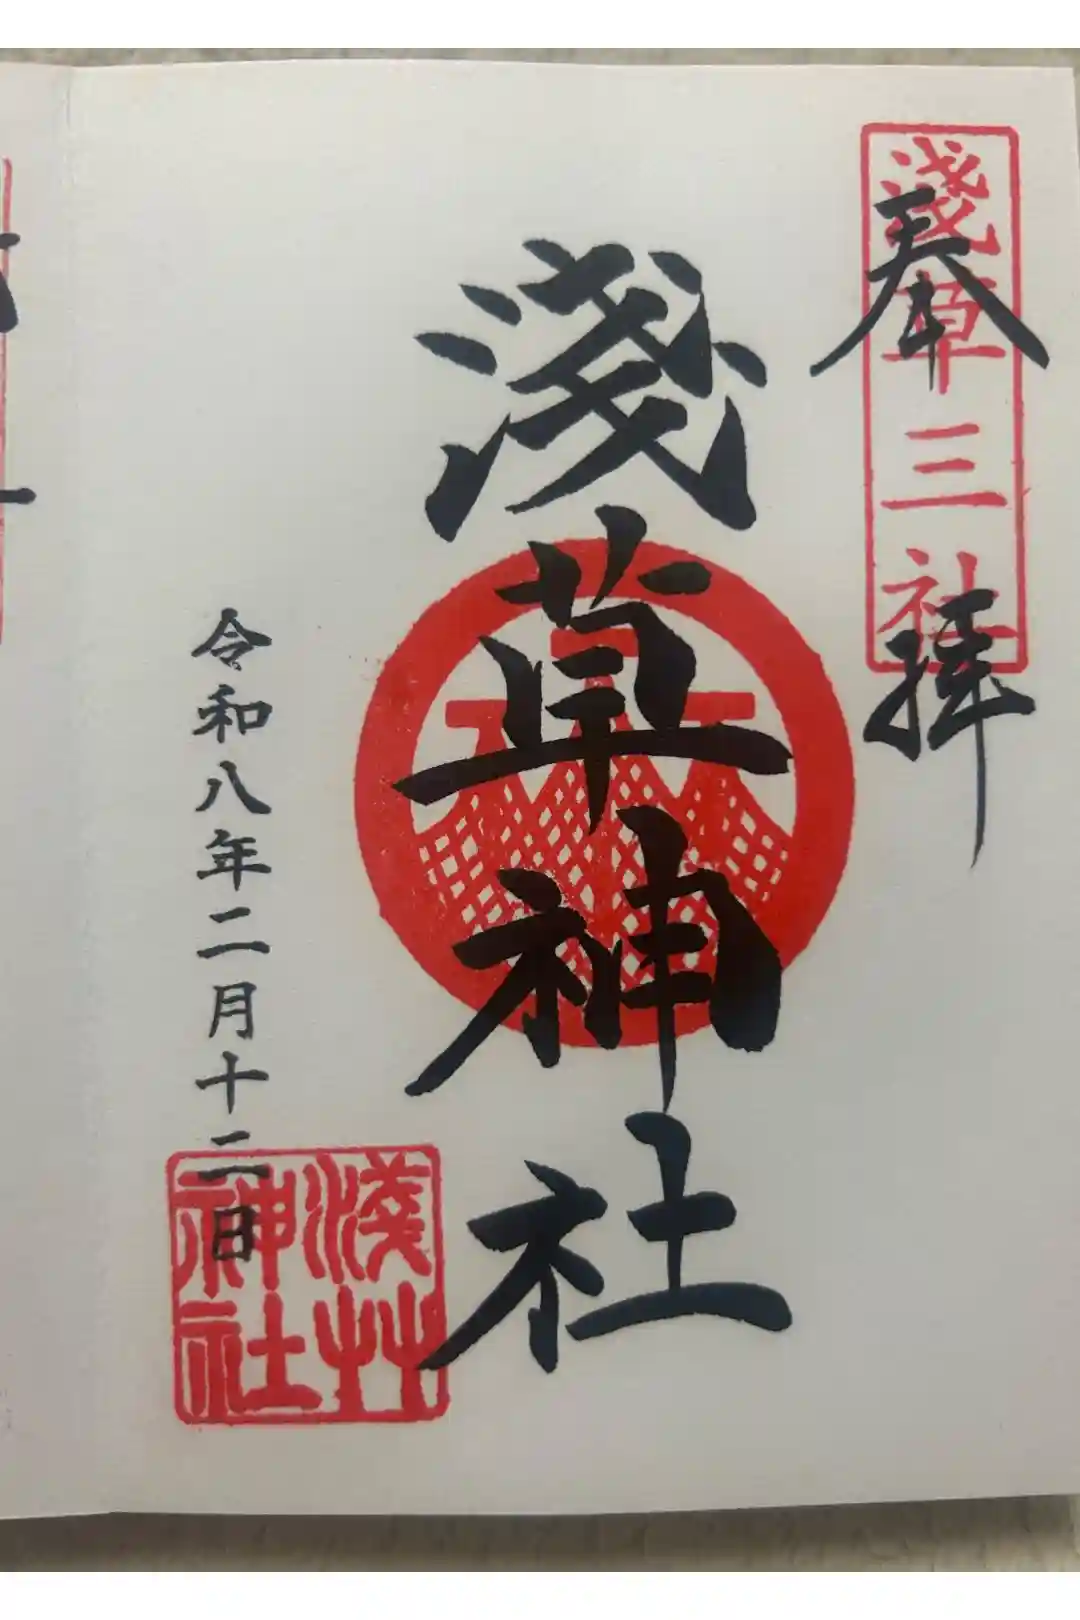 奉拝
淺草三社
淺草神社
令和八年二月十二日
淺艸
神社